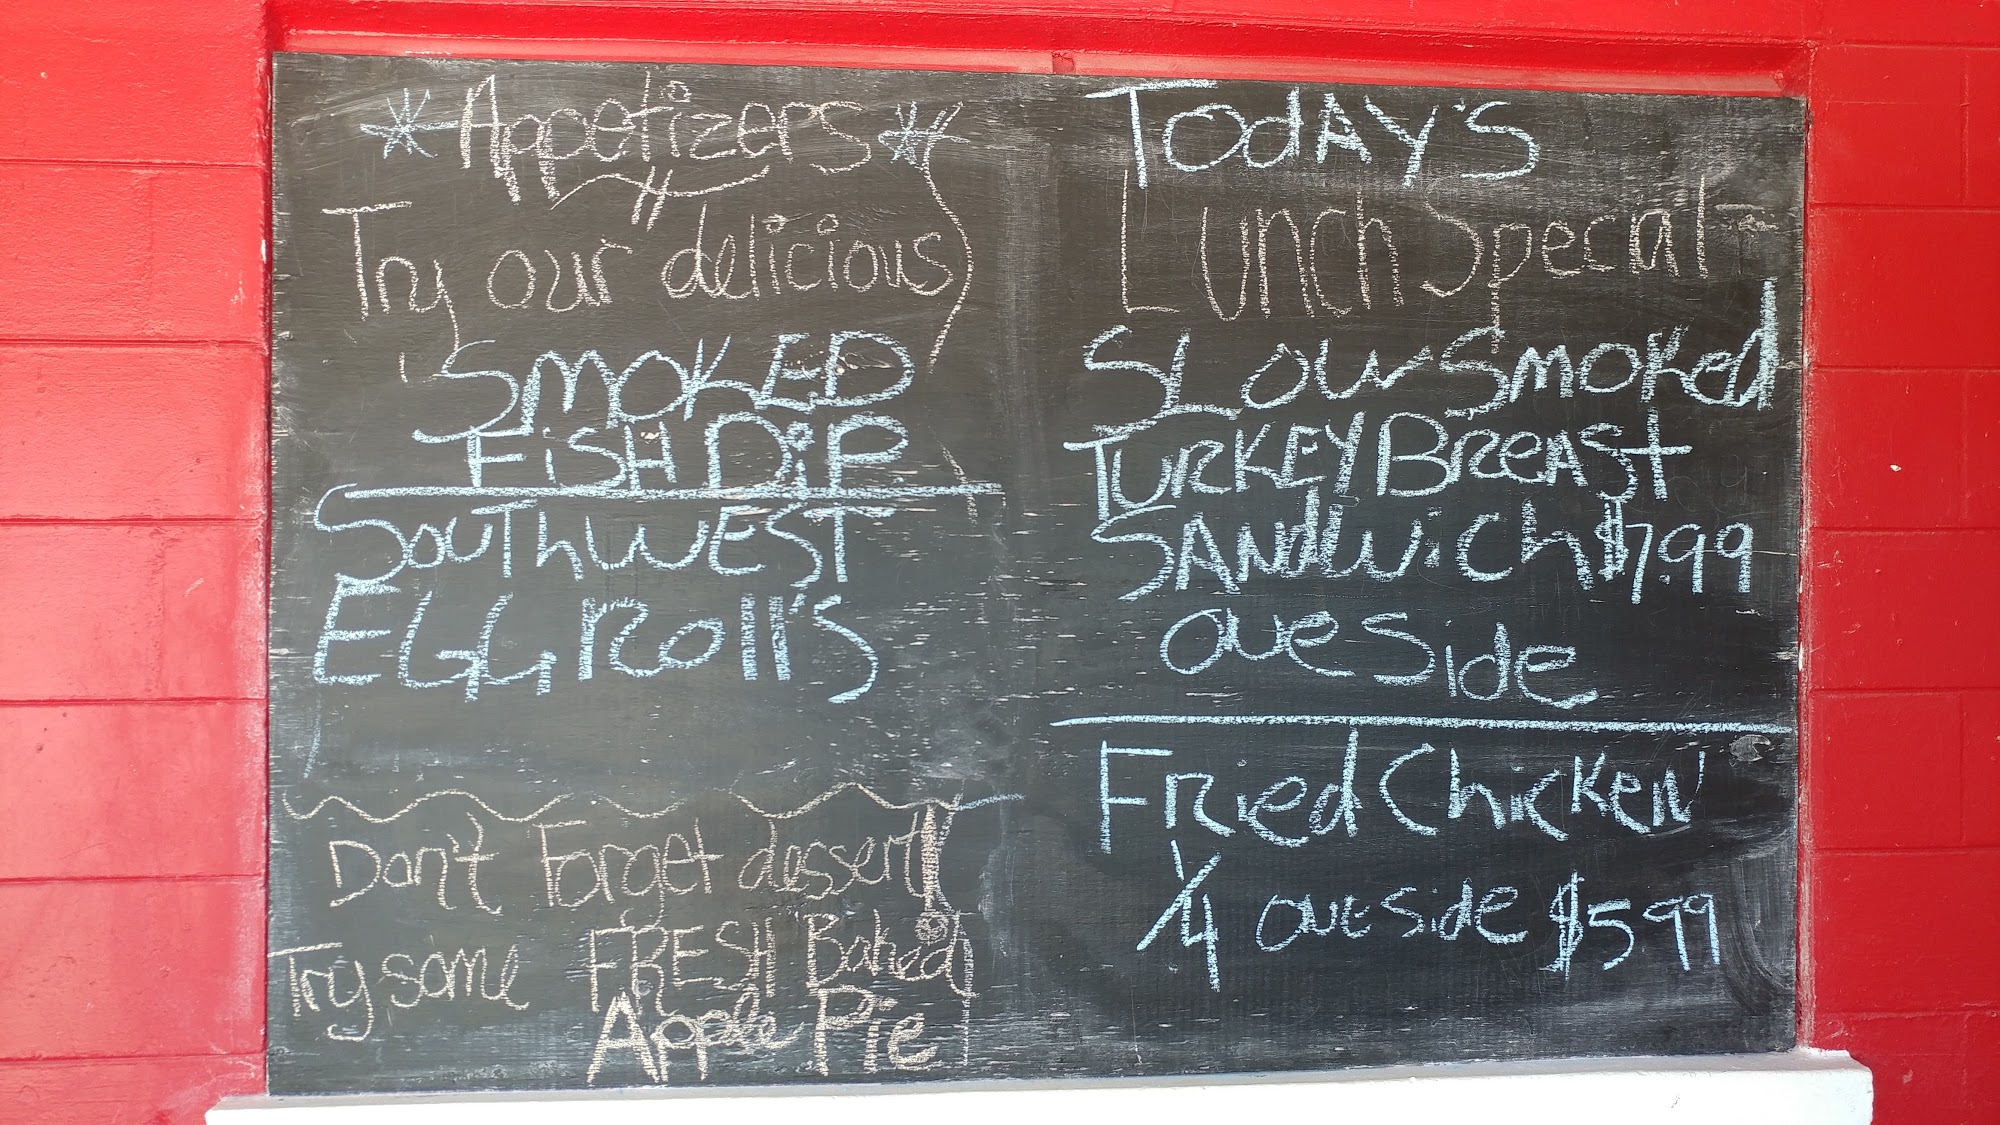 *Appetizers*
Try our delicious
SMOKED
FiSH DiP
SOUTHWEST
EGG Roll's
Don't Forget dessert!
Try some FRESH Baked
Apple Pie
TodAY's
Lunch Special
SLow Smoked
TURKEY BreAST
SANdwich $7.99
one Side
Fried Chicken
1/4 one side $5.99